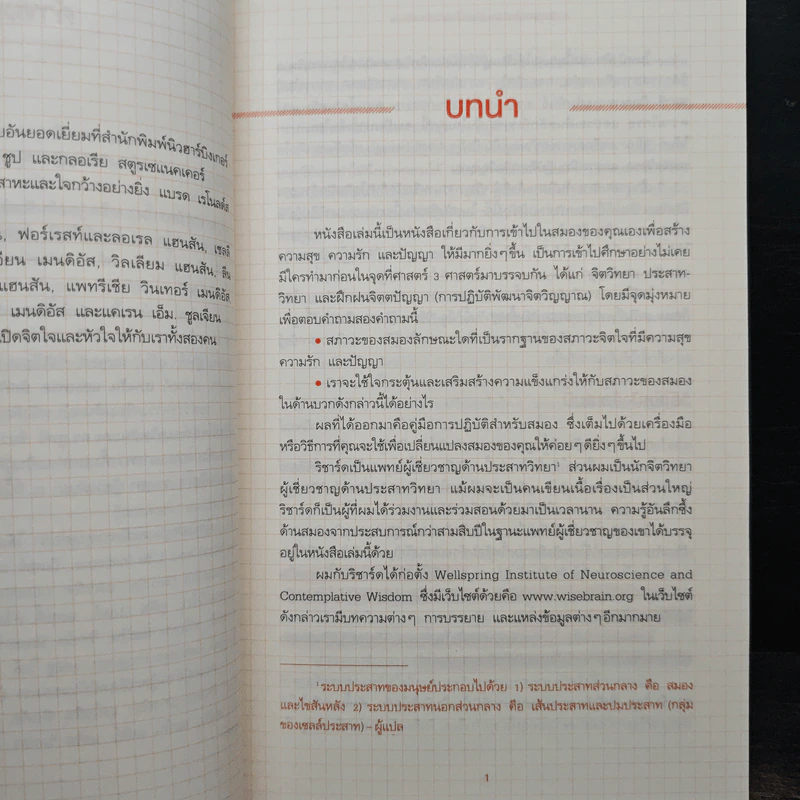 อันยอดเยี่ยมที่สำนักพิมพ์นิวฮาร์บิงเกอร์
ซูป และกลอเรีย สตูรเซแนคเคอร์
สาหะและใจกว้างอย่างยิ่ง แบรด เรโนลด์ส
ฟอร์เรสท์และลอเรล แฮนสัน,
เมนดิอัส, วิลเลียม แฮนสัน,
แฮนสัน, แพทริเซีย วินเทอร์ เมนดิอัส
เมนดิอัส และแคเรน เอ็ม. ซูลเจียน
เปิดจิตใจและหัวใจให้กับเราทั้งสองคน
บทนำ
หนังสือเล่มนี้เป็นหนังสือเกี่ยวกับการเข้าไปในสมองของคุณเองเพื่อสร้าง
ความสุข ความรัก และปัญญา ให้มีมากยิ่งๆขึ้น เป็นการเข้าไปศึกษาอย่างไม่เคย
มีใครทำมาก่อนในจุดที่ศาสตร์ 3 ศาสตร์มาบรรจบกัน ได้แก่ จิตวิทยา ประสาท-
วิทยา และฝึกฝนจิตตปัญญา (การปฏิบัติพัฒนาจิตวิญญาณ) โดยมีจุดมุ่งหมาย
เพื่อตอบคำถามสองคำถามนี้
• สภาวะของสมองลักษณะใดที่เป็นรากฐานของสภาวะจิตใจที่มีความสุข
ความรัก และปัญญา
• เราจะใช้ใจกระตุ้นและเสริมสร้างความแข็งแกร่งให้กับสภาวะของสมอง
ในด้านบวกดังกล่าวนี้ได้อย่างไร
ผลที่ได้ออกมาคือคู่มือการปฏิบัติสำหรับสมอง ซึ่งเต็มไปด้วยเครื่องมือ
หรือวิธีการที่คุณจะใช้เพื่อเปลี่ยนแปลงสมองของคุณให้ค่อยๆดียิ่งๆขึ้นไป
ริชาร์ดเป็นแพทย์ผู้เชี่ยวชาญด้านประสาทวิทยา¹ ส่วนผมเป็นนักจิตวิทยา
ผู้เชี่ยวชาญด้านประสาทวิทยา แม้ผมจะเป็นคนเขียนเนื้อเรื่องเป็นส่วนใหญ่
ริชาร์ดก็เป็นผู้ที่ผมได้ร่วมงานและร่วมสอนด้วยมาเป็นเวลานาน ความรู้อันลึกซึ้ง
ด้านสมองจากประสบการณ์กว่าสามสิบปีในฐานะแพทย์ผู้เชี่ยวชาญของเขาได้บรรจุ
อยู่ในหนังสือเล่มนี้ด้วย
ผมกับริชาร์ดได้ก่อตั้ง Wellspring Institute of Neuroscience and
Contemplative Wisdom ซึ่งมีเว็บไซต์ด้วยคือ www.wisebrain.org ในเว็บไซต์
ดังกล่าวเรามีบทความต่างๆ การบรรยาย และแหล่งข้อมูลต่างๆอีกมากมาย
¹ระบบประสาทของมนุษย์ประกอบไปด้วย 1) ระบบประสาทส่วนกลาง คือ สมอง
และไขสันหลัง 2) ระบบประสาทนอกส่วนกลาง คือ เส้นประสาทและปมประสาท (กลุ่ม
ของเซลล์ประสาท) – ผู้แปล
1